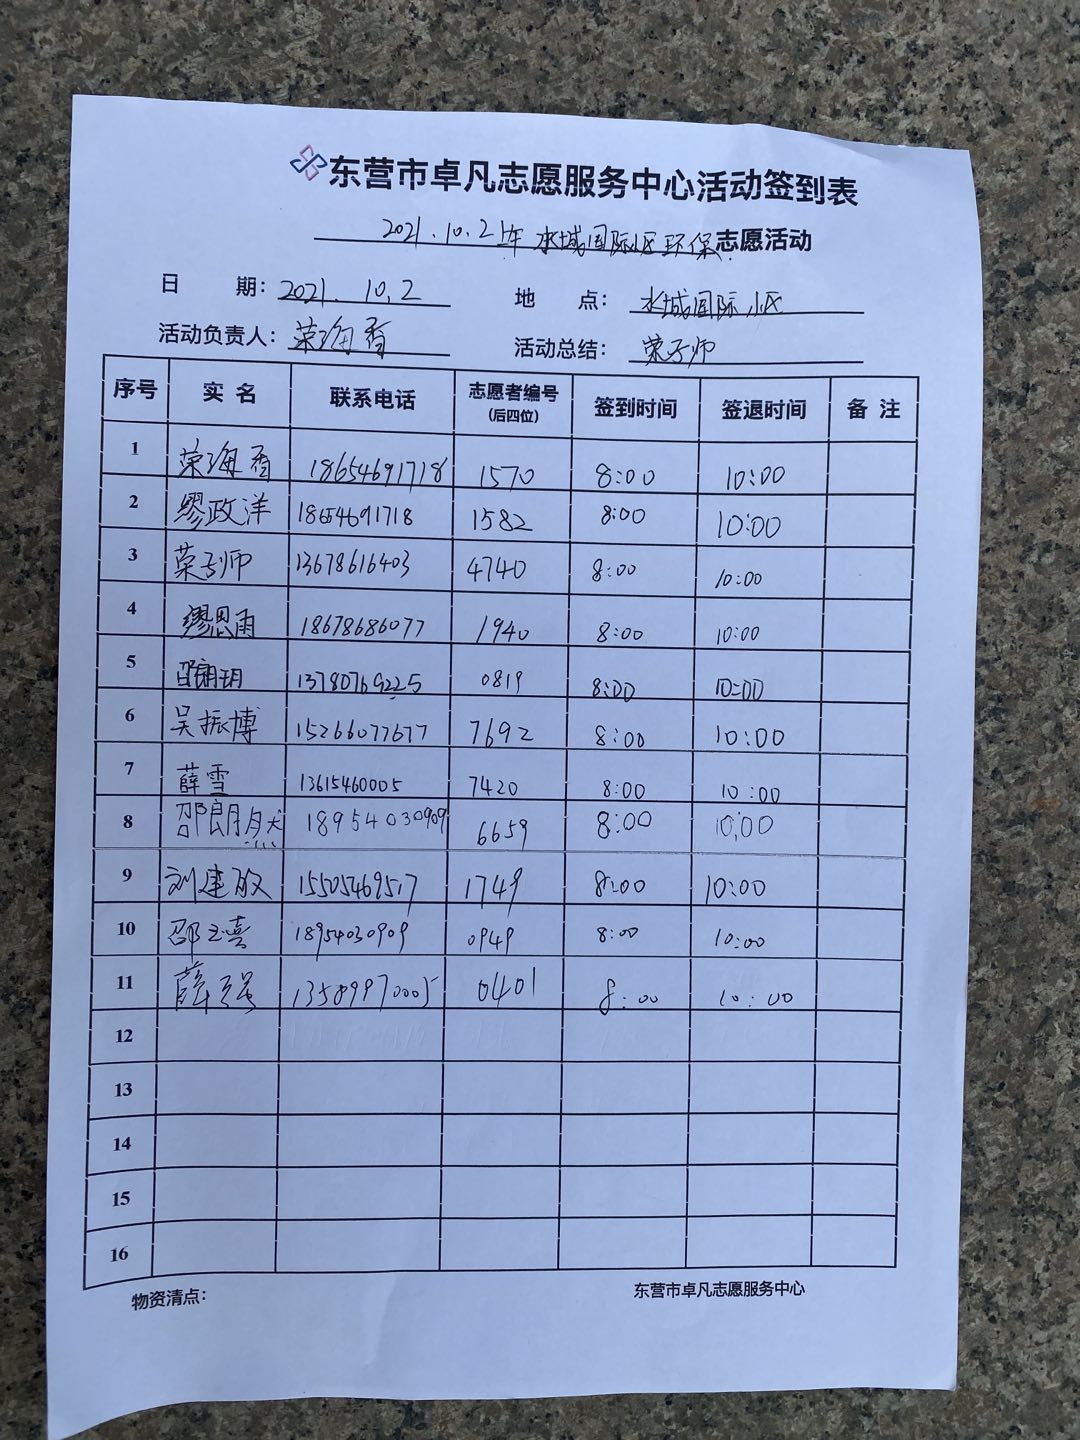 东营市卓凡志愿服务中心活动签到表
2021.10.2上午水城国际小区环保志愿活动
日 期：2021.10.2 地 点：水城国际小区
活动负责人：荣海香 活动总结：荣子师
序号 实名 联系电话 志愿者编号(后四位) 签到时间 签退时间 备注
1 荣海香 18654691718 1570 8:00 10:00
2 缪政洋 18654691718 1582 8:00 10:00
3 荣子师 13678616403 4740 8:00 10:00
4 缪思雨 18678686077 1940 8:00 10:00
5 邵朗玥 13780769225 0819 8:00 10:00
6 吴振博 15266077677 7692 8:00 10:00
7 薛雪 13615460005 7420 8:00 10:00
8 邵朗然 18954030909 6659 8:00 10:00
9 刘建敏 15505469517 1749 8:00 10:00
10 邵玉喜 18954030909 0949 8:00 10:00
11 薛强 13589970005 0401 8:00 10:00
12
13
14
15
16
物资清点： 东营市卓凡志愿服务中心